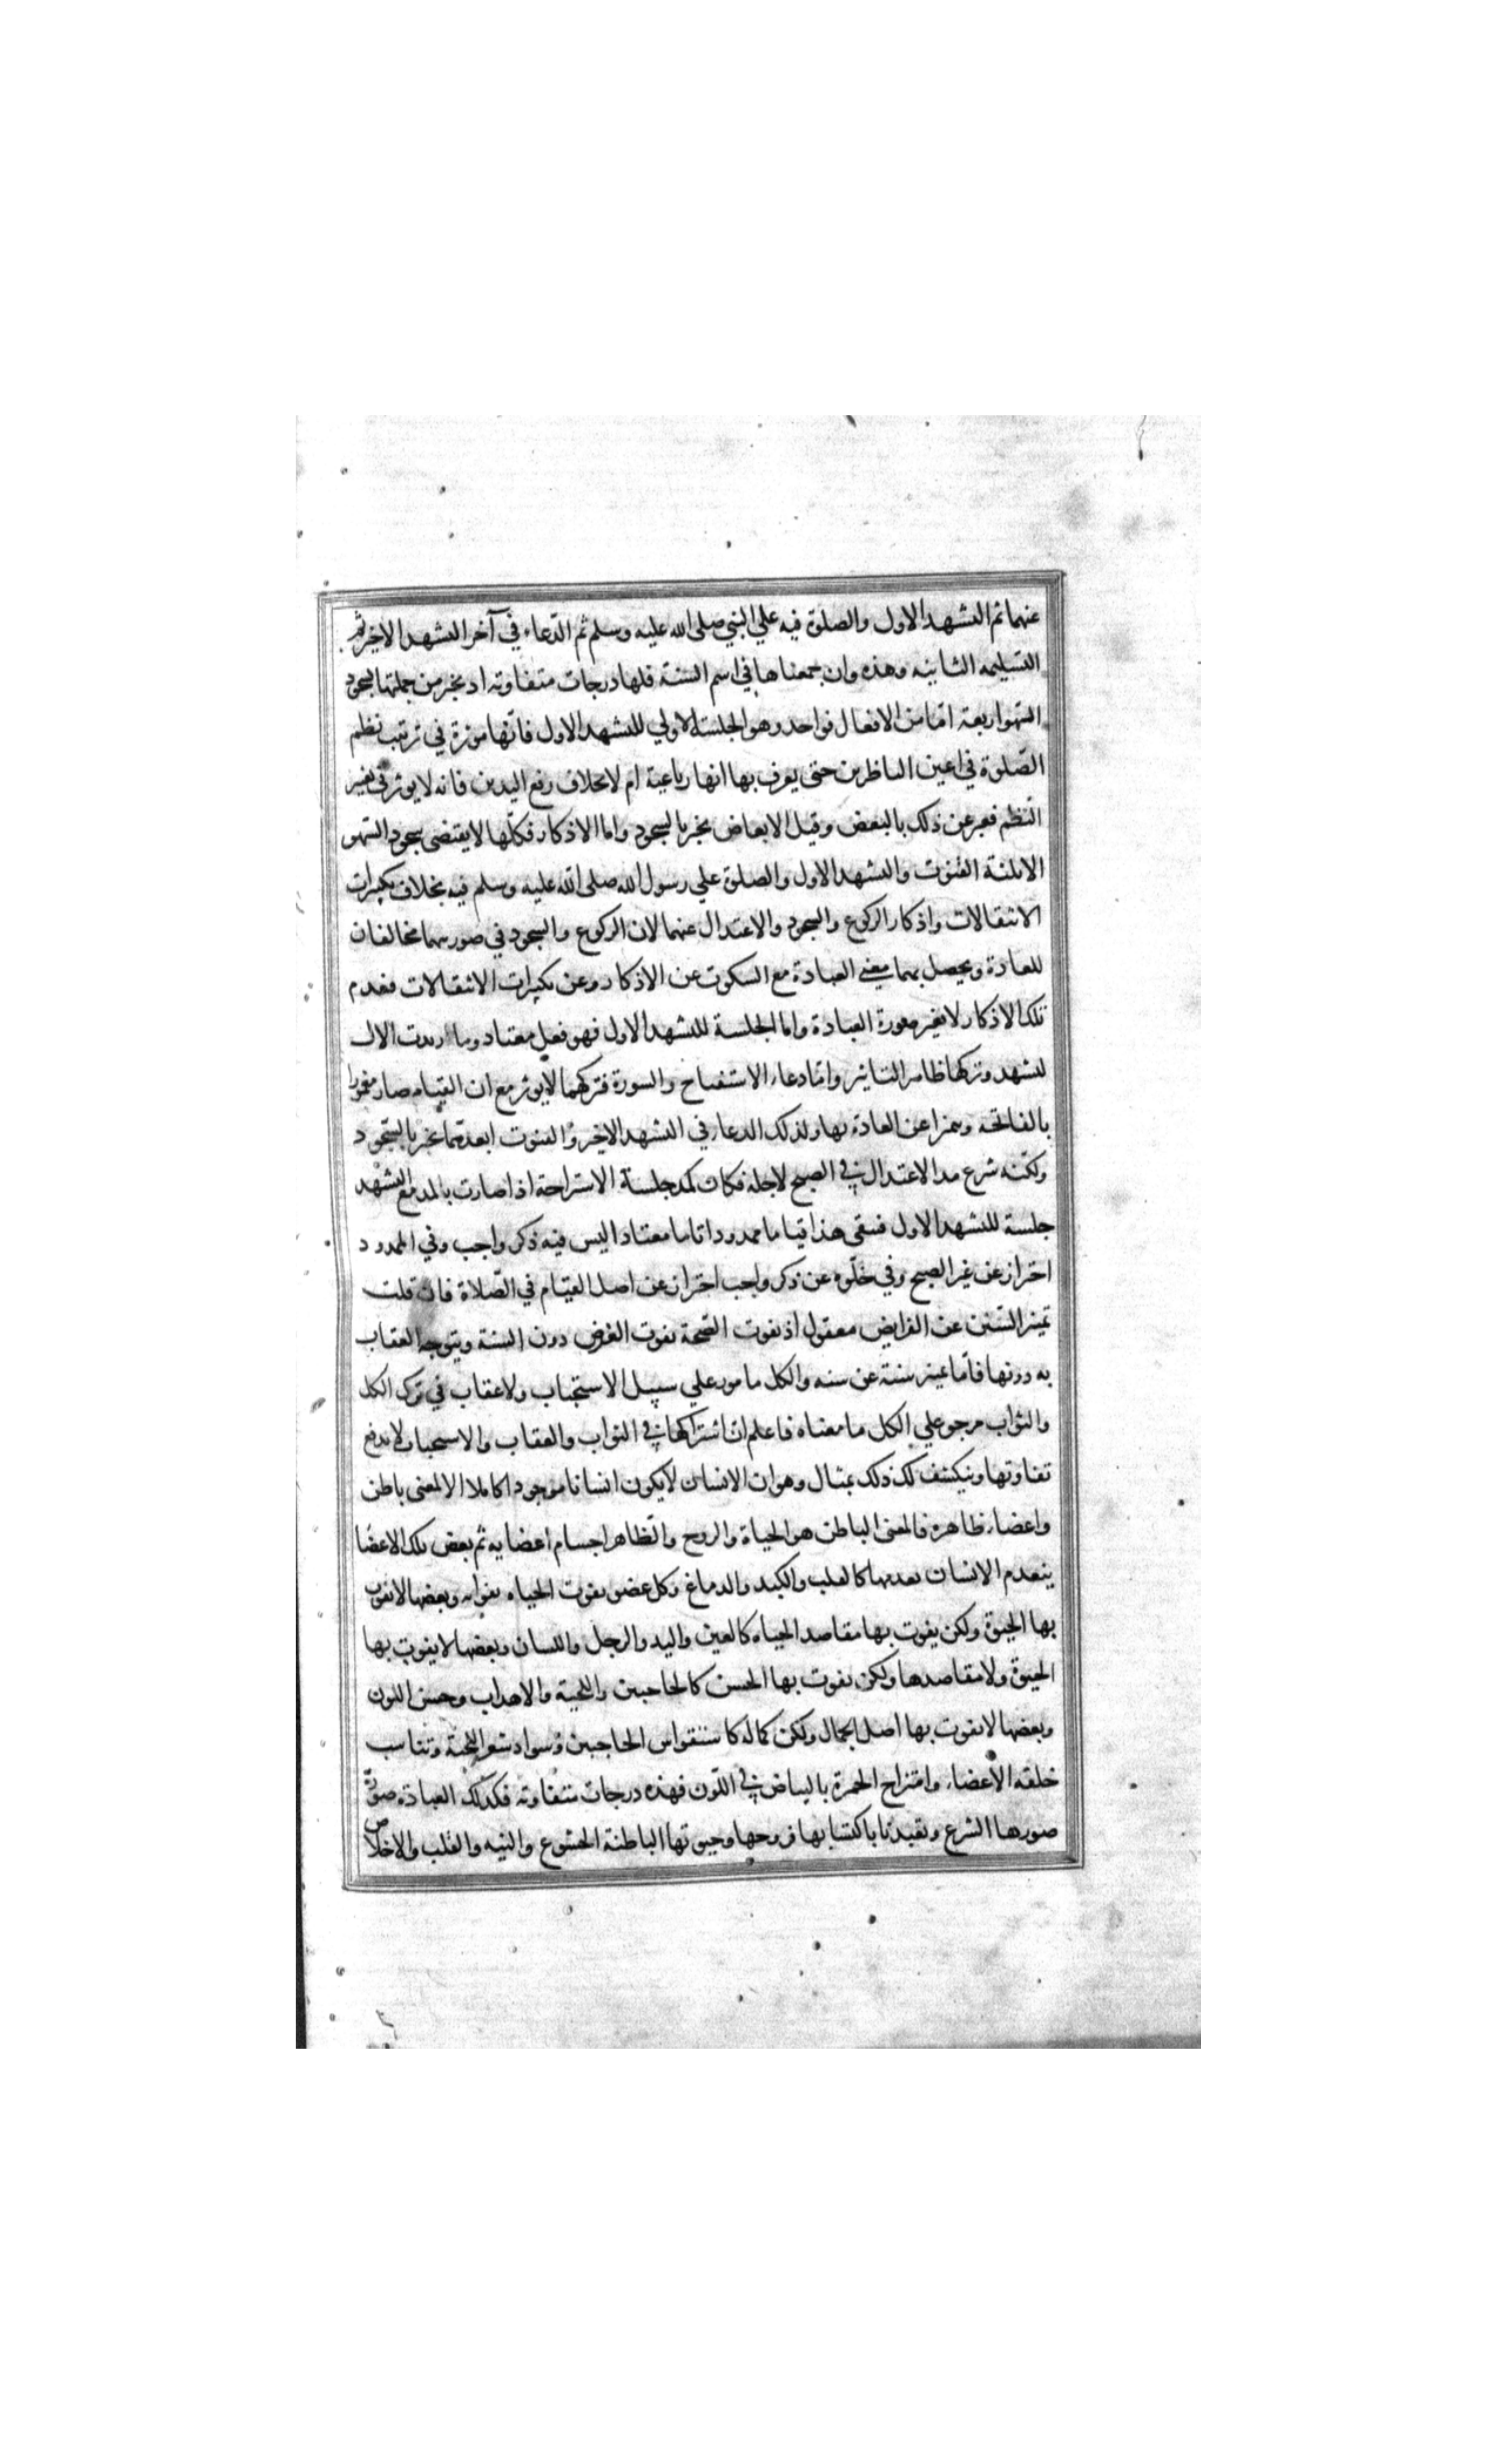 عنهما ثم التشهد الاول والصلوة فيه علي النبي صلى الله عليه وسلم ثم الدّعاء في آخر التشهد الاخير ثم
التسليمه الثانيه وهذه وان جمعناها في اسم السنة فلها درجات متفاوته اد يجبر من جملتها بسجود
السّهو اربعة امّا من الافعال فواحد وهو الجلسة الاولي للتشهد الاول فانّها موثرة في ترتيب نظم
الصّلوة في اعين الناظرين حتى يعرف بها انها رباعية ام لا بخلاف رفع اليدين فانه لا يوثر في تغيير
النّظم فعبر عن ذلك بالبعض وقيل الابعاض يجبر بالسجود واما الاذكار فكلّها لا يقتضى سجود السّهو
الا ثلثة القنوت والتشهد الاول والصلوة علي رسول الله صلى الله عليه وسلم فيه بخلاف تكبيرات
الانتقالات واذكار الركوع والسجود والاعتدال عنهما لان الركوع والسجود في صورتهما مخالفان
للعادة ويحصل بهما معنى العبادة مع السكوت عن الاذكار وعن تكبيرات الانتقالات فعدم
تلك الاذكار لا تغير صورة العبادة واما الجلسة للتشهد الاول فهو فعل معتاد وما زيدت الا
لتشهد وتركها ظاهر التاثير وامّا دعاء الاستفتاح والسورة فتركهما لا يوثر مع ان القيام صار معمورا
بالفاتحه ومميزا عن العادة بها ولذلك الدعاء في التشهد الاخير والقنوت ابعد بالسّجود
ولكنّه شرع مد الاعتدال في الصبح لاجله فكان كمد جلسة الاستراحة اذا صارت بالمد مع التشهد
جلسة للتشهد الاول فبقى هذا قياما ممدودا تاما معتادا ليس فيه ذكر واجب وفي الممدود
احتراز عن غير الصبح وفي خلّوه عن ذكر واجب احتراز عن اصل القيام في الصّلاة فان قلت
تميز السّنن عن الفرايض معقول اذ تفوت الصّحة بفوت الفرض دون السنة ويتوجه العقاب
به دونها فأما تميز سنة عن سنه والكل مامور علي سبيل الاستحباب ولا عقاب في ترك الكل
والثواب مرجو علي الكل ما معناه فاعلم ان اشتراكها في الثواب والعقاب والاستحباب لا يدفع
تفاوتها وينكشف لك ذلك بمثال وهو ان الانسان لا يكون انسانا موجودا كاملا الا لمعنى باطن
واعضاء ظاهره فالمعنى الباطن هو الحياة والروح والظاهر اجسام اعضايه ثم بعض تلك الاعضا
ينعدم الانسان بعدمها كالقلب والكبد والدماغ وكل عضو تفوت الحياه بفواته وبعضها لا تفوت
بها الحيوة ولكن يفوت بها مقاصد الحياه كالعين واليد والرجل واللسان وبعضها لا يفوت بها
الحيوة ولا مقاصدها ولكن يفوت بها الحسن كالحاجبين واللحية والاهداب وحسن اللون
وبعضها لا يفوت بها اصل الجمال ولكن كماله كاستقواس الحاجبين وسواد شعر اللحية وتناسب
خلقه الأعضاء وامتزاج الحمرة بالبياض في اللّون فهذه درجات متفاوته فكذلك العبادة صورة
صورها الشرع وتعبدنا باكتسابها فروحها وحيوتها الباطنة الخشوع والنيه والقلب والاخلاص